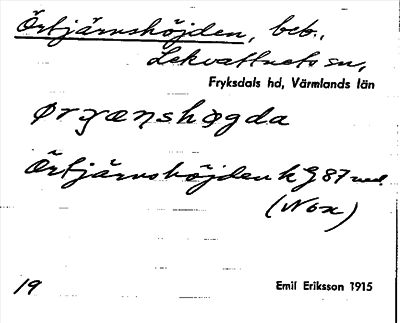 Örtjärnshöjden, beb.,
Lekvattnets sn,
Fryksdals hd, Värmlands län
ørɟæṇshøgda
Örtjärnshöjden k G 87 ned.
(Nox)
19
Emil Eriksson 1915